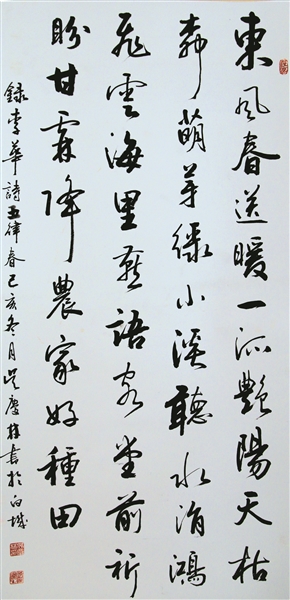 東風春送暖一派艷陽天枯
萌芽綠小溪聽水涓鴻
飛雲海里燕語宅堂前祈
盼甘霖降農家好種田
錄李華詩五律春己亥冬月吴慶書於白城